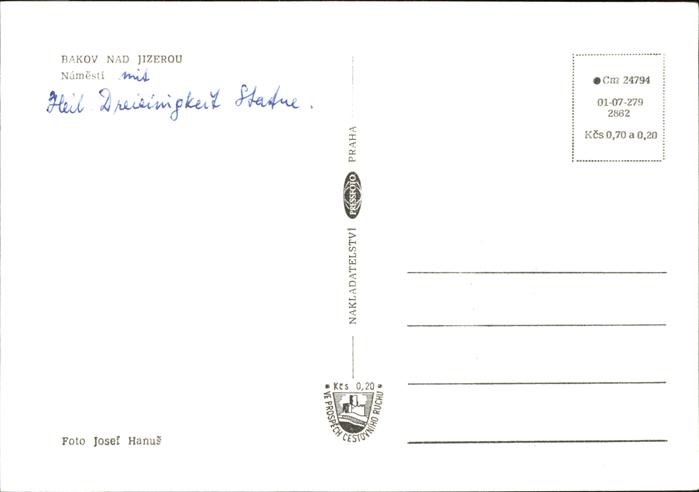 BAKOV NAD JIZEROU
Náměstí mit
Heil Dreieinigkeit Statue.
Foto Josef Hanuš
NAKLADATELSTVÍ PRESSFOTO PRAHA
* Kčs 0,20 *
VE PROSPĚCH CESTOVNÍHO RUCHU
●Cm 24794
01-07-279
2862
Kčs 0,70 a 0,20